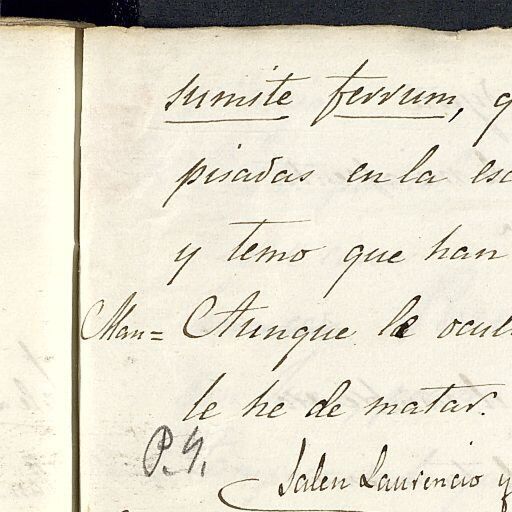 sumite ferrum, q
pisadas en la esc
y temo que han
Man= Aunque le ocul
le he de matar.
P. Y.
Salen Laurencio y